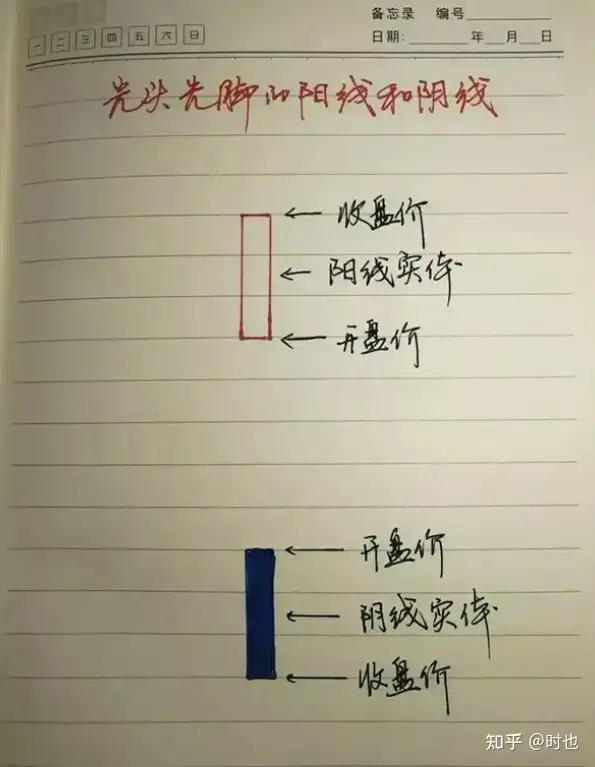 备忘录 编号
一 二 三 四 五 六 日
日期: 年 月 日
光头光脚的阳线和阴线
收盘价
阳线实体
开盘价
开盘价
阴线实体
收盘价
知乎 @时也